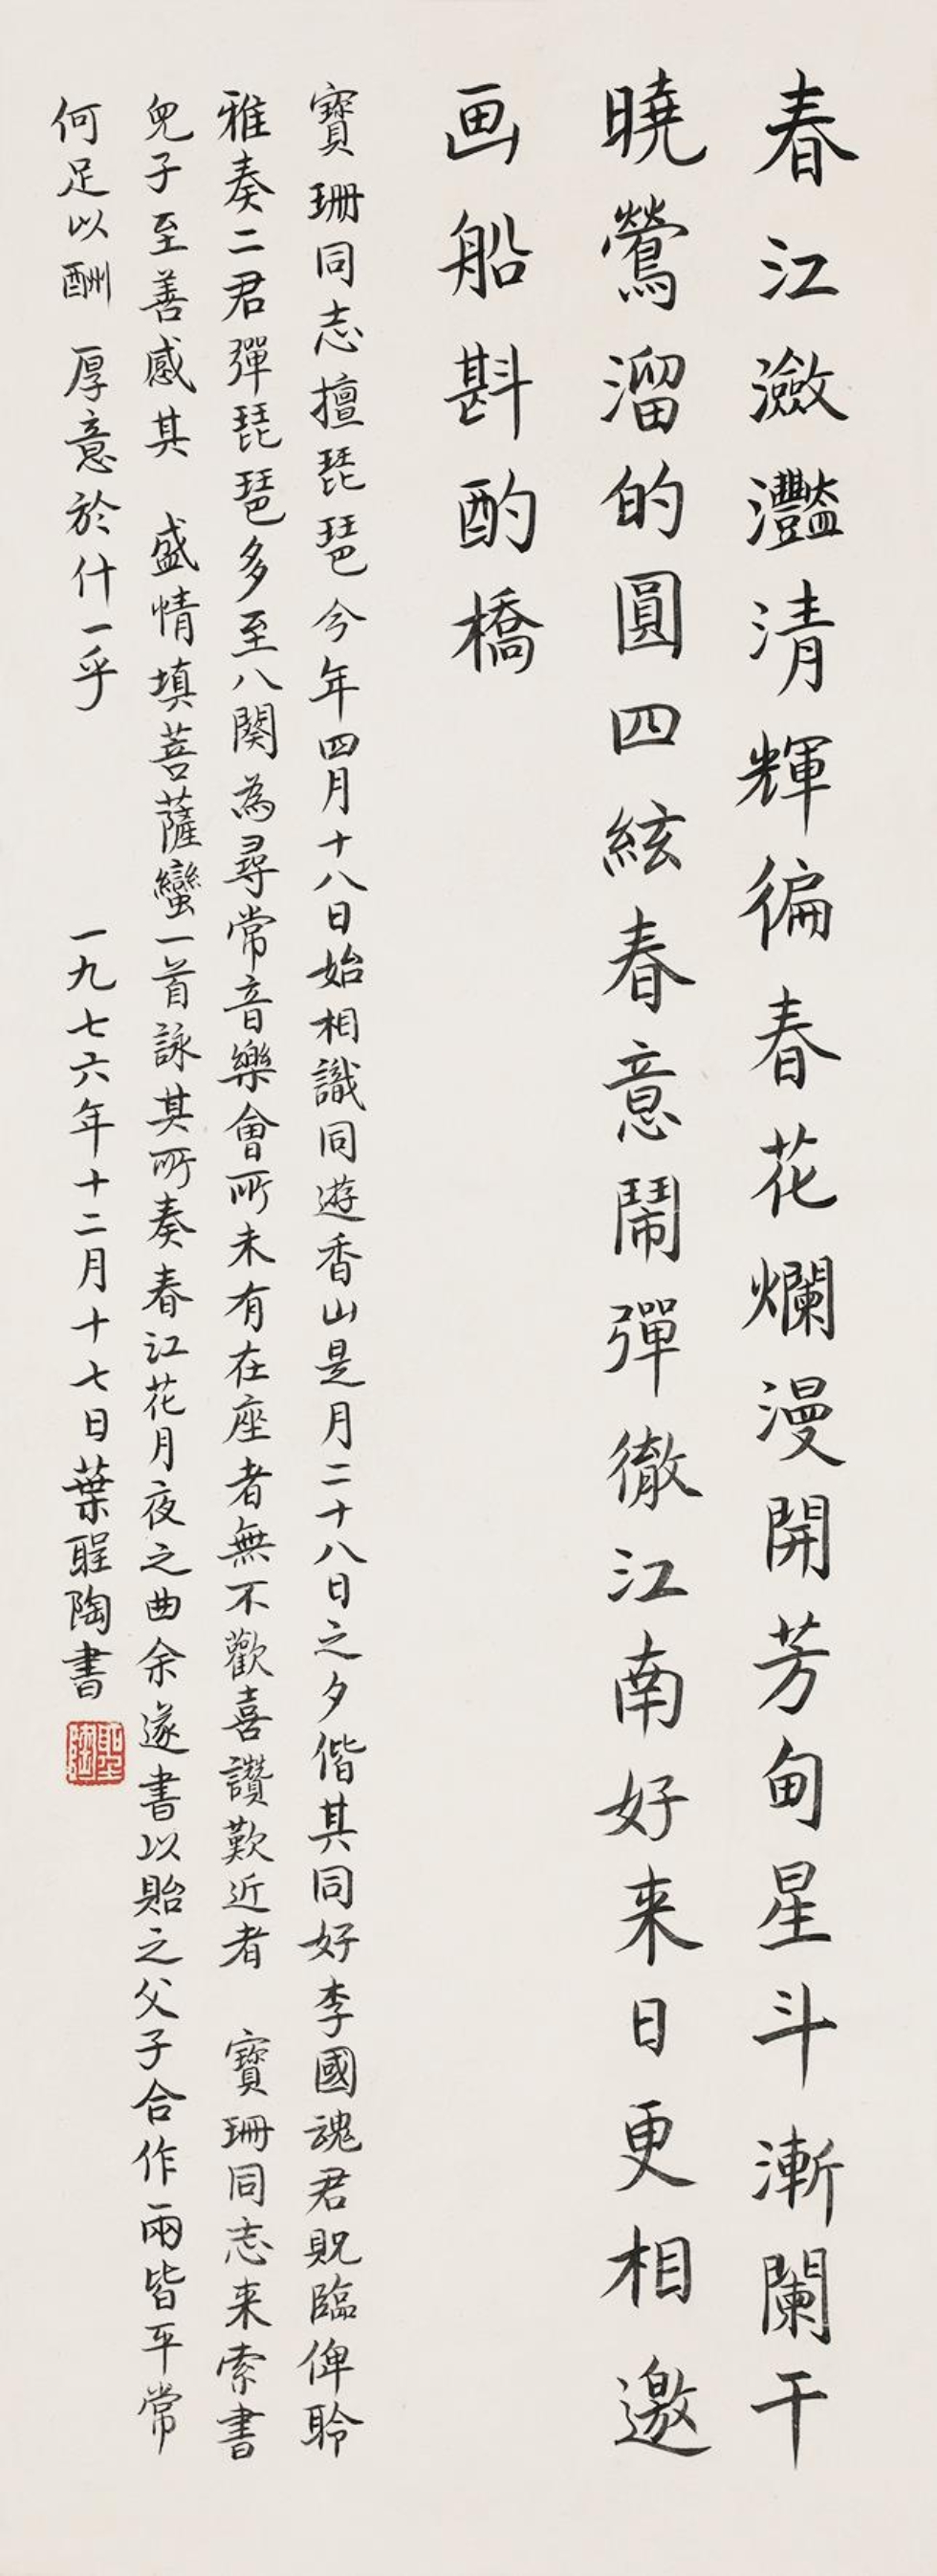 春江潋灩清輝徧春花爛漫開芳甸星斗漸闌干
曉鶯溜的圓四絃春意鬧彈徹江南好来日更相邀
画船斟酌橋
寶珊同志擅琵琶今年四月十八日始相識同遊香山是月二十八日之夕偕其同好李國魂君貺臨俾聆
雅奏二君彈琵琶多至八闋為尋常音樂會所未有在座者無不歡喜讚歎近者 寶珊同志来索書
兒子至善感其 盛情填菩薩蠻一首詠其所奏春江花月夜之曲余遂書以貽之父子合作兩皆平常
何足以酬 厚意於什一乎 一九七六年十二月十七日葉聖陶書
聖陶